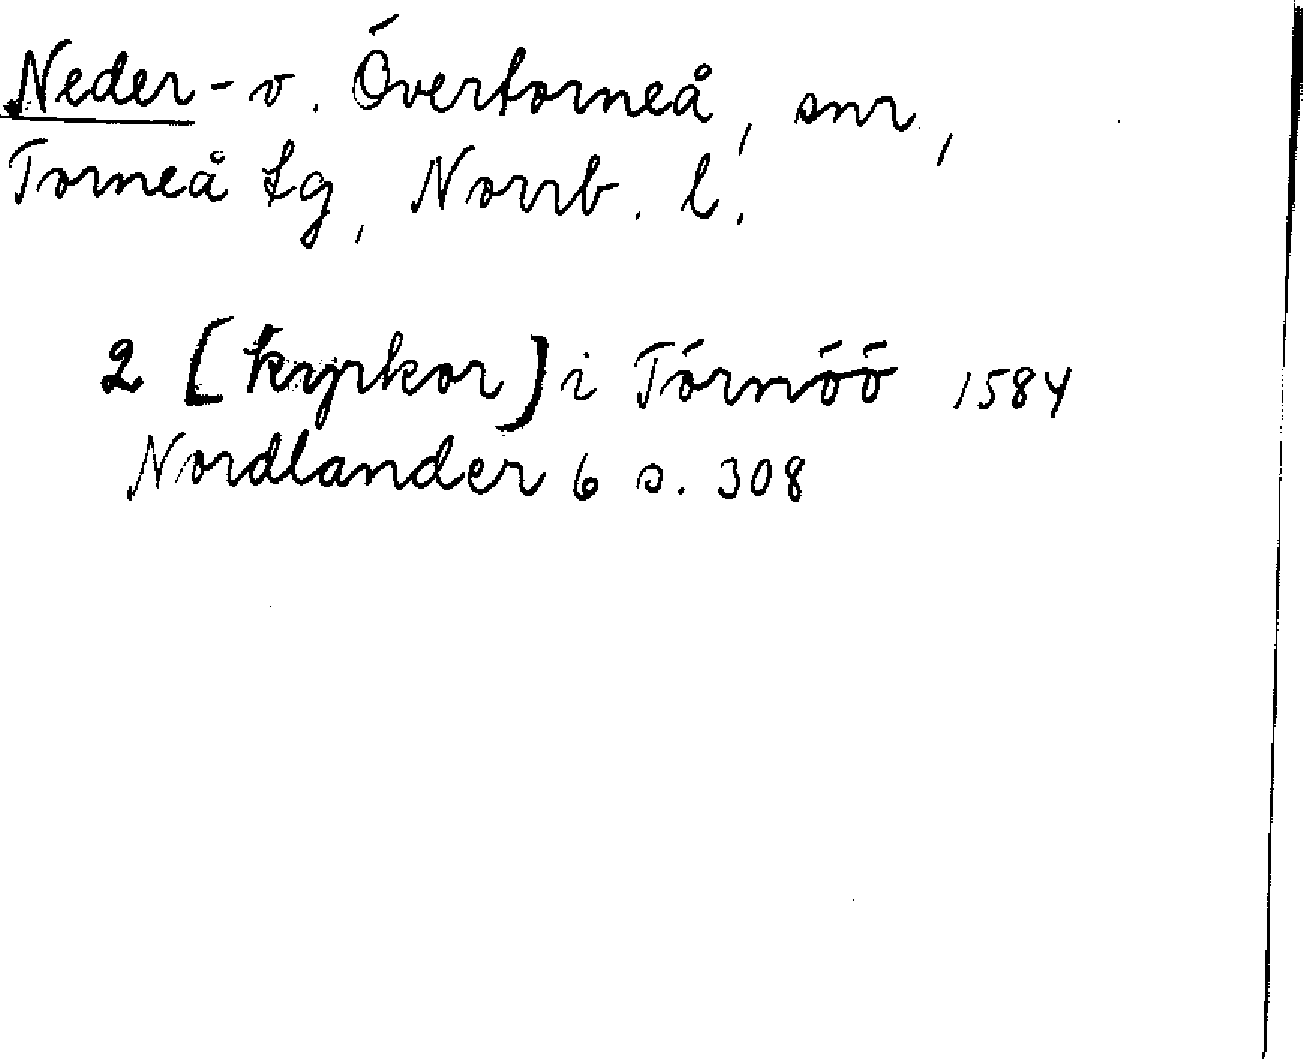 Neder- o. Övertorneå, snr,
Torneå tg, Norrb. l.
2 [kyrkor] i Törnöö 1584
Nordlander 6 s. 308